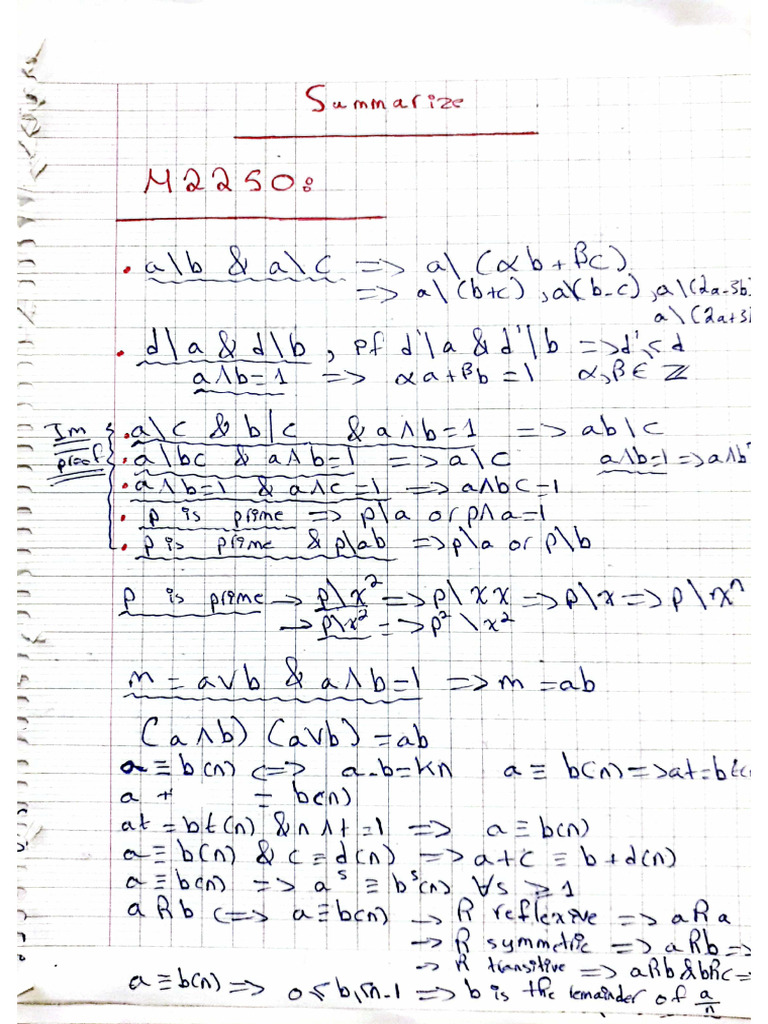 Summarize
M2250:
• a\b & a\c => a\ (αb + βc)
=> a\(b+c), a\(b-c), a\(2a-3b
a\(2a+3
• d\a & d\b, Pf d'\a & d'\b => d' ≤ d
a∧b=1 => αa+βb=1 α,β ∈ ℤ
Im proof
• a\c & b\c & a∧b=1 => ab\c
• a\bc & a∧b=1 => a\c a∧b=1 => a∧b
• a∧b=1 & a∧c=1 => a∧bc=1
• p is prime => p\a or p∧a=1
• p is prime & p\ab => p\a or p\b
p is prime → p\x² => p\xx => p\x => p\xⁿ
→ p\x² => p²\x²
m = a∨b & a∧b=1 => m=ab
(a∧b) (a∨b) = ab
a ≡ b(n) <=> a-b=Kn a ≡ b(n) => at=bt(
a + = b(n)
at = bt(n) & n∧t=1 => a ≡ b(n)
a ≡ b(n) & c = d(n) => a+c ≡ b+d(n)
a ≡ b(n) => aˢ ≡ bˢ(n) ∀s ≥ 1
aRb <=> a ≡ b(n) → R reflexive => aRa
→ R symmetric => aRb =>
→ R transitive => aRb & bRc =
a ≡ b(n) => 0≤b≤n-1 => b is the remainder of a/n